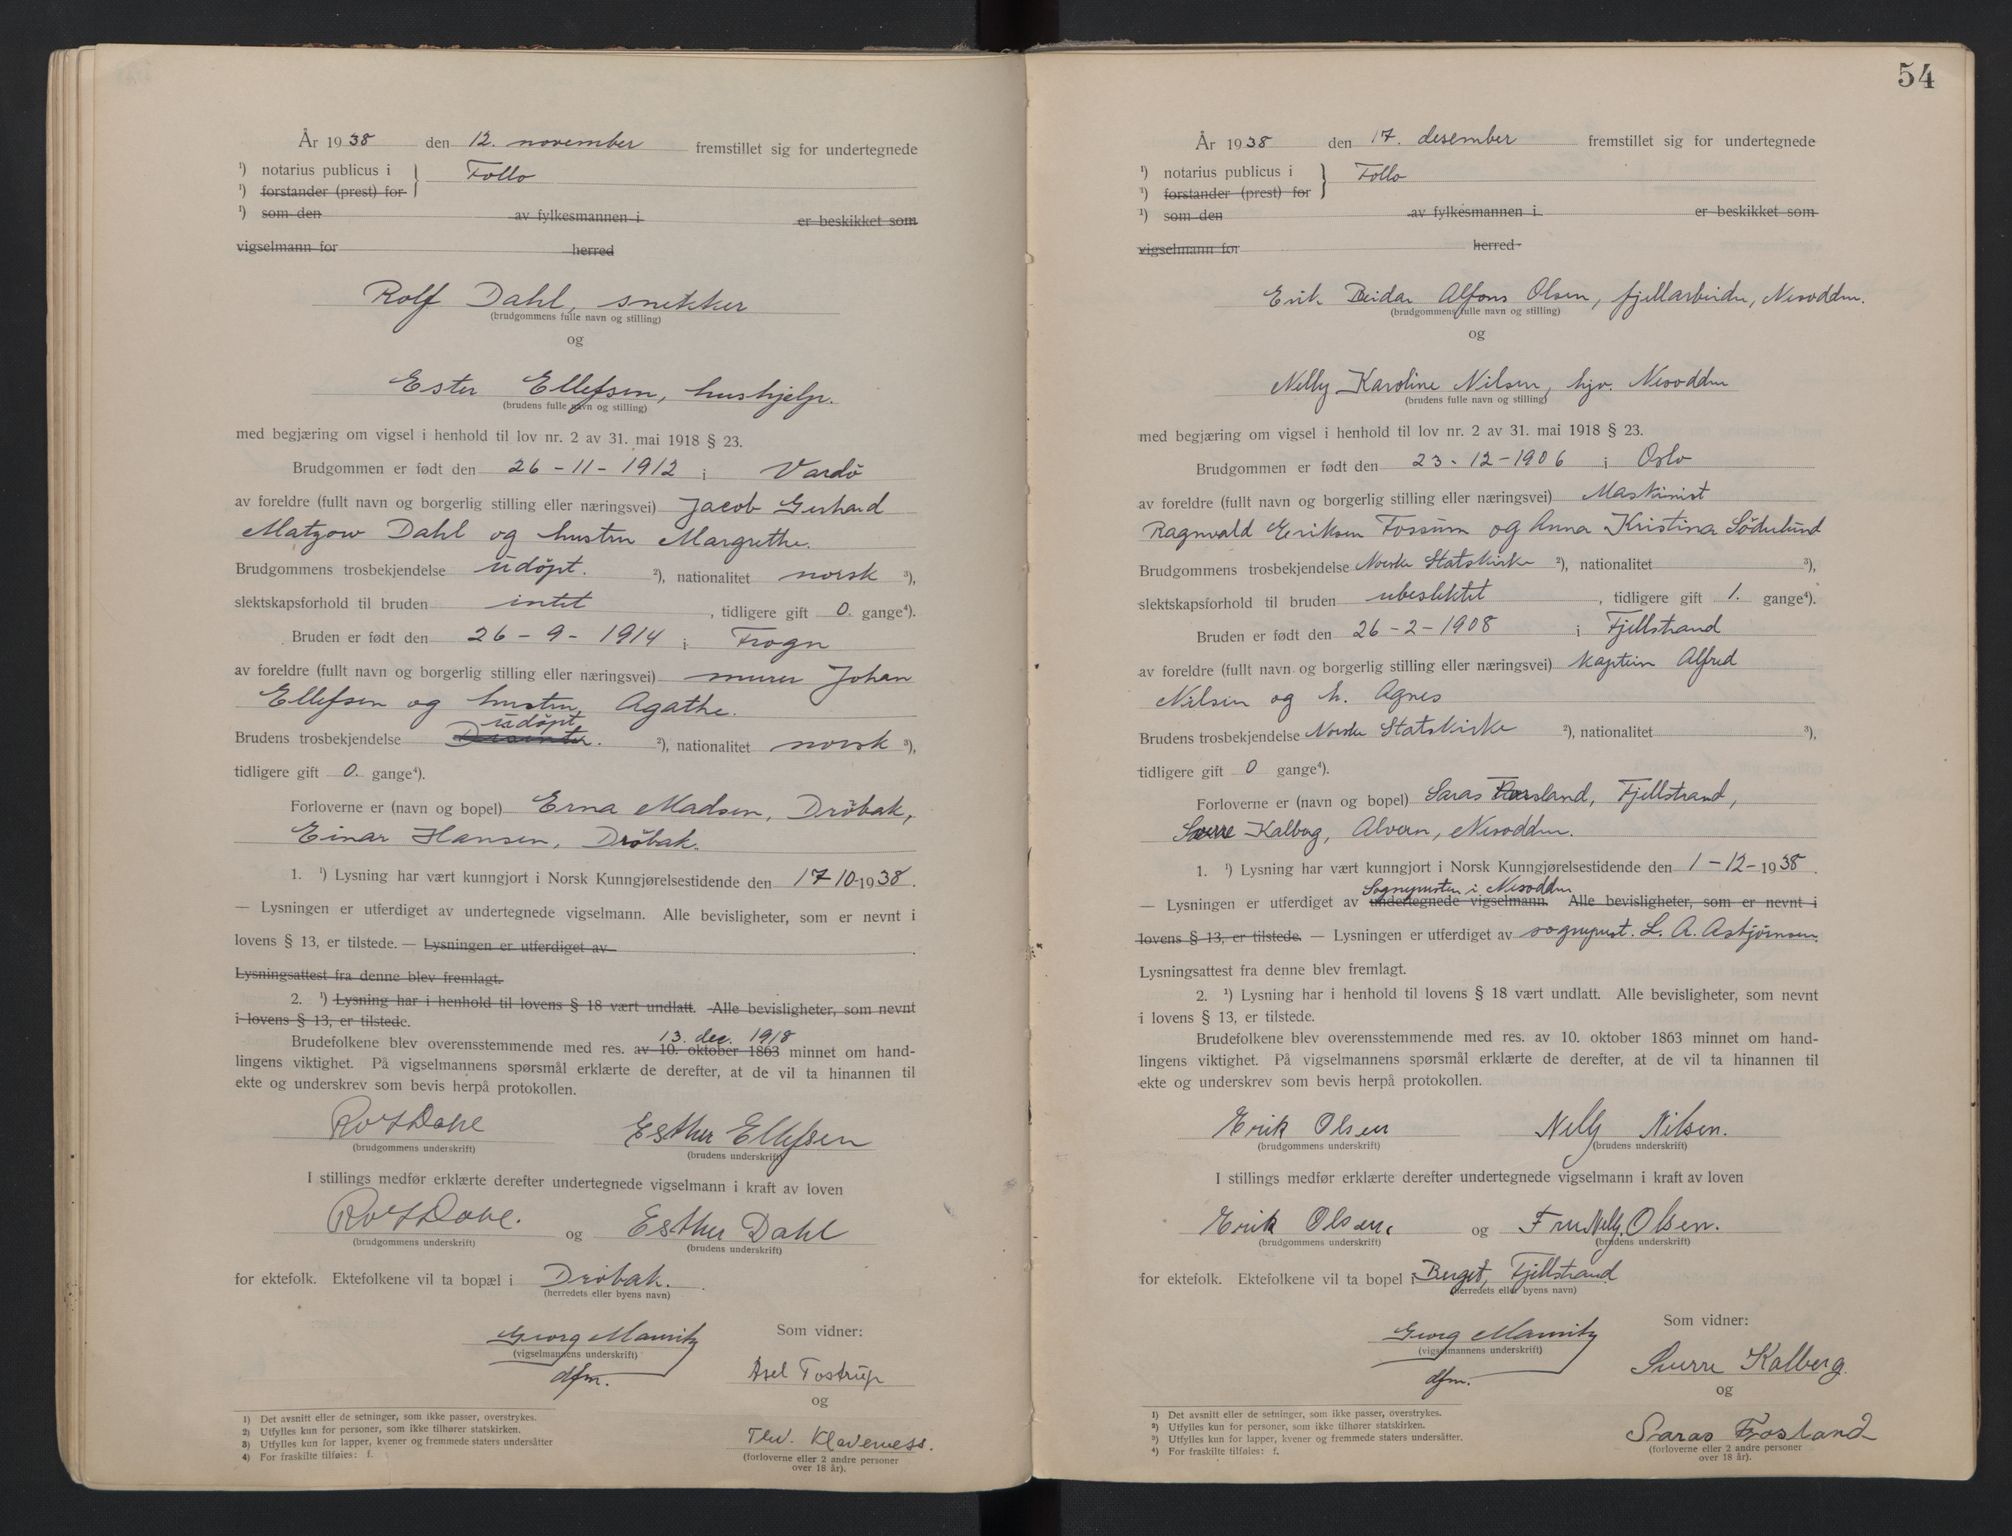 År 1938 den 12. november fremstillet sig for undertegnede
1) notarius publicus i } Follo
1) forstander (prest) for
1) som den av fylkesmannen i er beskikket som
vigselmann for herred
Rolf Dahl, snekker
(brudgommens fulle navn og stilling)
og
Ester Ellefsen, hushjelp.
(brudens fulle navn og stilling)
med begjæring om vigsel i henhold til lov nr. 2 av 31. mai 1918 § 23.
Brudgommen er født den 26-11-1912 i Vardö
av foreldre (fullt navn og borgerlig stilling eller næringsvei) Jacob Gerhard
Matzow Dahl og hustru Margrethe.
Brudgommens trosbekjendelse udöpt. 2), nationalitet norsk 3),
slektskapsforhold til bruden intet, tidligere gift 0. gange4).
Bruden er født den 26-9-1914 i Frogn
av foreldre (fullt navn og borgerlig stilling eller næringsvei) murer Johan
Ellefsen og hustru Agathe.
udöpt
Brudens trosbekjendelse Disenter. 2), nationalitet norsk 3),
tidligere gift 0. gange4).
Forloverne er (navn og bopel) Erna Madsen, Dröbak,
Einar Hansen, Dröbak.
1. 1) Lysning har vært kunngjort i Norsk Kunngjørelsestidende den 17-10-1938.
— Lysningen er utferdiget av undertegnede vigselmann. Alle bevisligheter, som er nevnt i
lovens § 13, er tilstede. — Lysningen er utferdiget av
Lysningsattest fra denne blev fremlagt.
2. 1) Lysning har i henhold til lovens § 18 vært undlatt. Alle bevisligheter, som nevnt
i lovens § 13, er tilstede.
13. dec. 1918
Brudefolkene blev overensstemmende med res. av 10. oktober 1863 minnet om hand-
lingens viktighet. På vigselmannens spørsmål erklærte de derefter, at de vil ta hinannen til
ekte og underskrev som bevis herpå protokollen.
Rolf Dahl Esther Ellefsen
(brudgommens underskrift) (brudens underskrift)
I stillings medfør erklærte derefter undertegnede vigselmann i kraft av loven
Rolf Dahl. og Esther Dahl
(brudgommens underskrift) (brudens underskrift)
for ektefolk. Ektefolkene vil ta bopæl i Dröbak.
(herredets eller byens navn)
Georg Mauritz Som vidner:
(vigselmannens underskrift)
dfm. Axel Tostrup
og
Thv. Klaveness.
(forloverne eller 2 andre personer
over 18 år).
1) Det avsnitt eller de setninger, som ikke passer, overstrykes.
2) Utfylles kun for personer, som ikke tilhører statskirken.
3) Utfylles kun for lapper, kvener og fremmede staters undersåtter
4) For fraskilte tilføies: f.
54
År 1938 den 17. desember fremstillet sig for undertegnede
1) notarius publicus i } Follo
1) forstander (prest) for
1) som den av fylkesmannen i er beskikket som
vigselmann for herred
Erik Reidar Alfons Olsen, fjellarbeider, Nesodden.
(brudgommens fulle navn og stilling)
og
Nelly Karoline Nilsen, hjv. Nesodden
(brudens fulle navn og stilling)
med begjæring om vigsel i henhold til lov nr. 2 av 31. mai 1918 § 23.
Brudgommen er født den 23-12-1906 i Oslo
av foreldre (fullt navn og borgerlig stilling eller næringsvei) Maskinist
Ragnvald Eriksen Fossum og Anna Kristina Söderlund
Brudgommens trosbekjendelse Norske Statskirke 2), nationalitet 3),
slektskapsforhold til bruden ubeslektet, tidligere gift 1. gange4).
Bruden er født den 26-2-1908 i Fjellstrand
av foreldre (fullt navn og borgerlig stilling eller næringsvei) Kaptein Alfred
Nilsen og h. Agnes
Brudens trosbekjendelse Norske Statskirke 2), nationalitet 3),
tidligere gift 0 gange4).
Forloverne er (navn og bopel) Saras Frosland, Fjellstrand,
Sverre Kalberg, Alvern, Nesodden.
1. 1) Lysning har vært kunngjort i Norsk Kunngjørelsestidende den 1-12-1938.
Sogneprsten i Nesodden
— Lysningen er utferdiget av undertegnede vigselmann. Alle bevisligheter, som er nevnt i
lovens § 13, er tilstede. — Lysningen er utferdiget av sogneprest. L. A. Asbjörnsen.
Lysningsattest fra denne blev fremlagt.
2. 1) Lysning har i henhold til lovens § 18 vært undlatt. Alle bevisligheter, som nevnt
i lovens § 13, er tilstede.
Brudefolkene blev overensstemmende med res. av 10. oktober 1863 minnet om hand-
lingens viktighet. På vigselmannens spørsmål erklærte de derefter, at de vil ta hinannen til
ekte og underskrev som bevis herpå protokollen.
Erik Olsen Nelly Nilsen.
(brudgommens underskrift) (brudens underskrift)
I stillings medfør erklærte derefter undertegnede vigselmann i kraft av loven
Erik Olsen. og Fru Nelly Olsen.
(brudgommens underskrift) (brudens underskrift)
for ektefolk. Ektefolkene vil ta bopel i Berget, Fjellstrand
(herredets eller byens navn)
Georg Mauritz Som vidner:
(vigselmannens underskrift)
dfm. Sverre Kalberg.
og
Saras Frosland
(forloverne eller 2 andre personer
over 18 år).
1) Det avsnitt eller de setninger, som ikke passer, overstrykes.
2) Utfylles kun for personer, som ikke tilhører statskirken.
3) Utfylles kun for lapper, kvener og fremmede staters undersåtter.
4) For fraskilte tilføies: f.